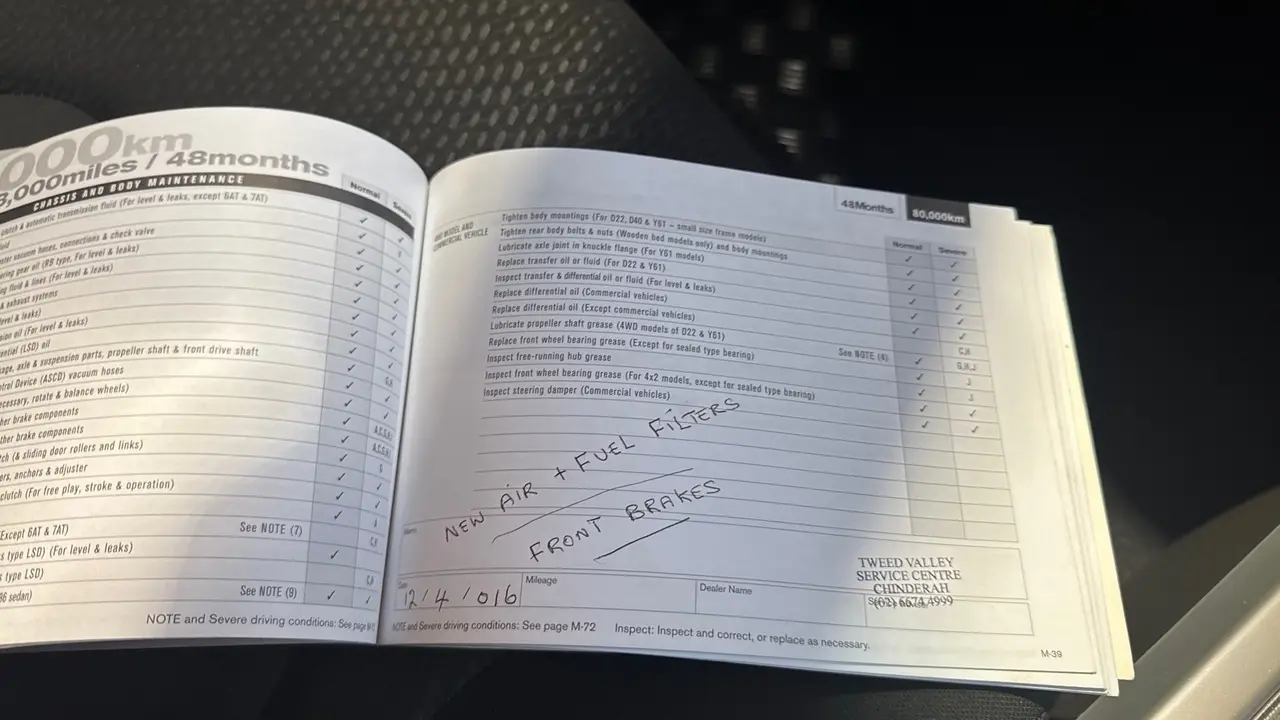 000km
8,000miles / 48months
CHASSIS AND BODY MAINTENANCE
Normal
clutch & automatic transmission fluid (For level & leaks, except 6AT & 7AT)
vacuum hoses, connections & check valve
gear oil (RS type, For level & leaks)
fluid & lines (For level & leaks)
& exhaust systems
level & leaks)
oil (For level & leaks)
(LSD) oil
axle & suspension parts, propeller shaft & front drive shaft
Device (ASCD) vacuum hoses
rotate & balance wheels)
brake components
other brake components
(& sliding door rollers and links)
anchors & adjuster
clutch (For free play, stroke & operation)
(Except 6AT & 7AT) See NOTE (7)
type LSD) (For level & leaks)
type LSD)
sedan) See NOTE (9)
NOTE and Severe driving conditions: See page
48Months 80,000km
Normal Severe
MODEL AND
COMMERCIAL VEHICLE
Tighten body mountings (For D22, D40 & Y61 – small size frame models)
Tighten rear body bolts & nuts (Wooden bed models only) and body mountings
Lubricate axle joint in knuckle flange (For Y61 models)
Replace transfer oil or fluid (For D22 & Y61)
Inspect transfer & differential oil or fluid (For level & leaks)
Replace differential oil (Commercial vehicles)
Replace differential oil (Except commercial vehicles)
Lubricate propeller shaft grease (4WD models of D22 & Y61)
Replace front wheel bearing grease (Except for sealed type bearing) See NOTE (4)
Inspect free-running hub grease
Inspect front wheel bearing grease (For 4x2 models, except for sealed type bearing)
Inspect steering damper (Commercial vehicles)
NEW AIR + FUEL FILTERS
FRONT BRAKES
Date
12/4/016
Mileage
Dealer Name
TWEED VALLEY
SERVICE CENTRE
CHINDERAH
(02) 6674 4999
NOTE and Severe driving conditions: See page M-72 Inspect: Inspect and correct, or replace as necessary.
M-39